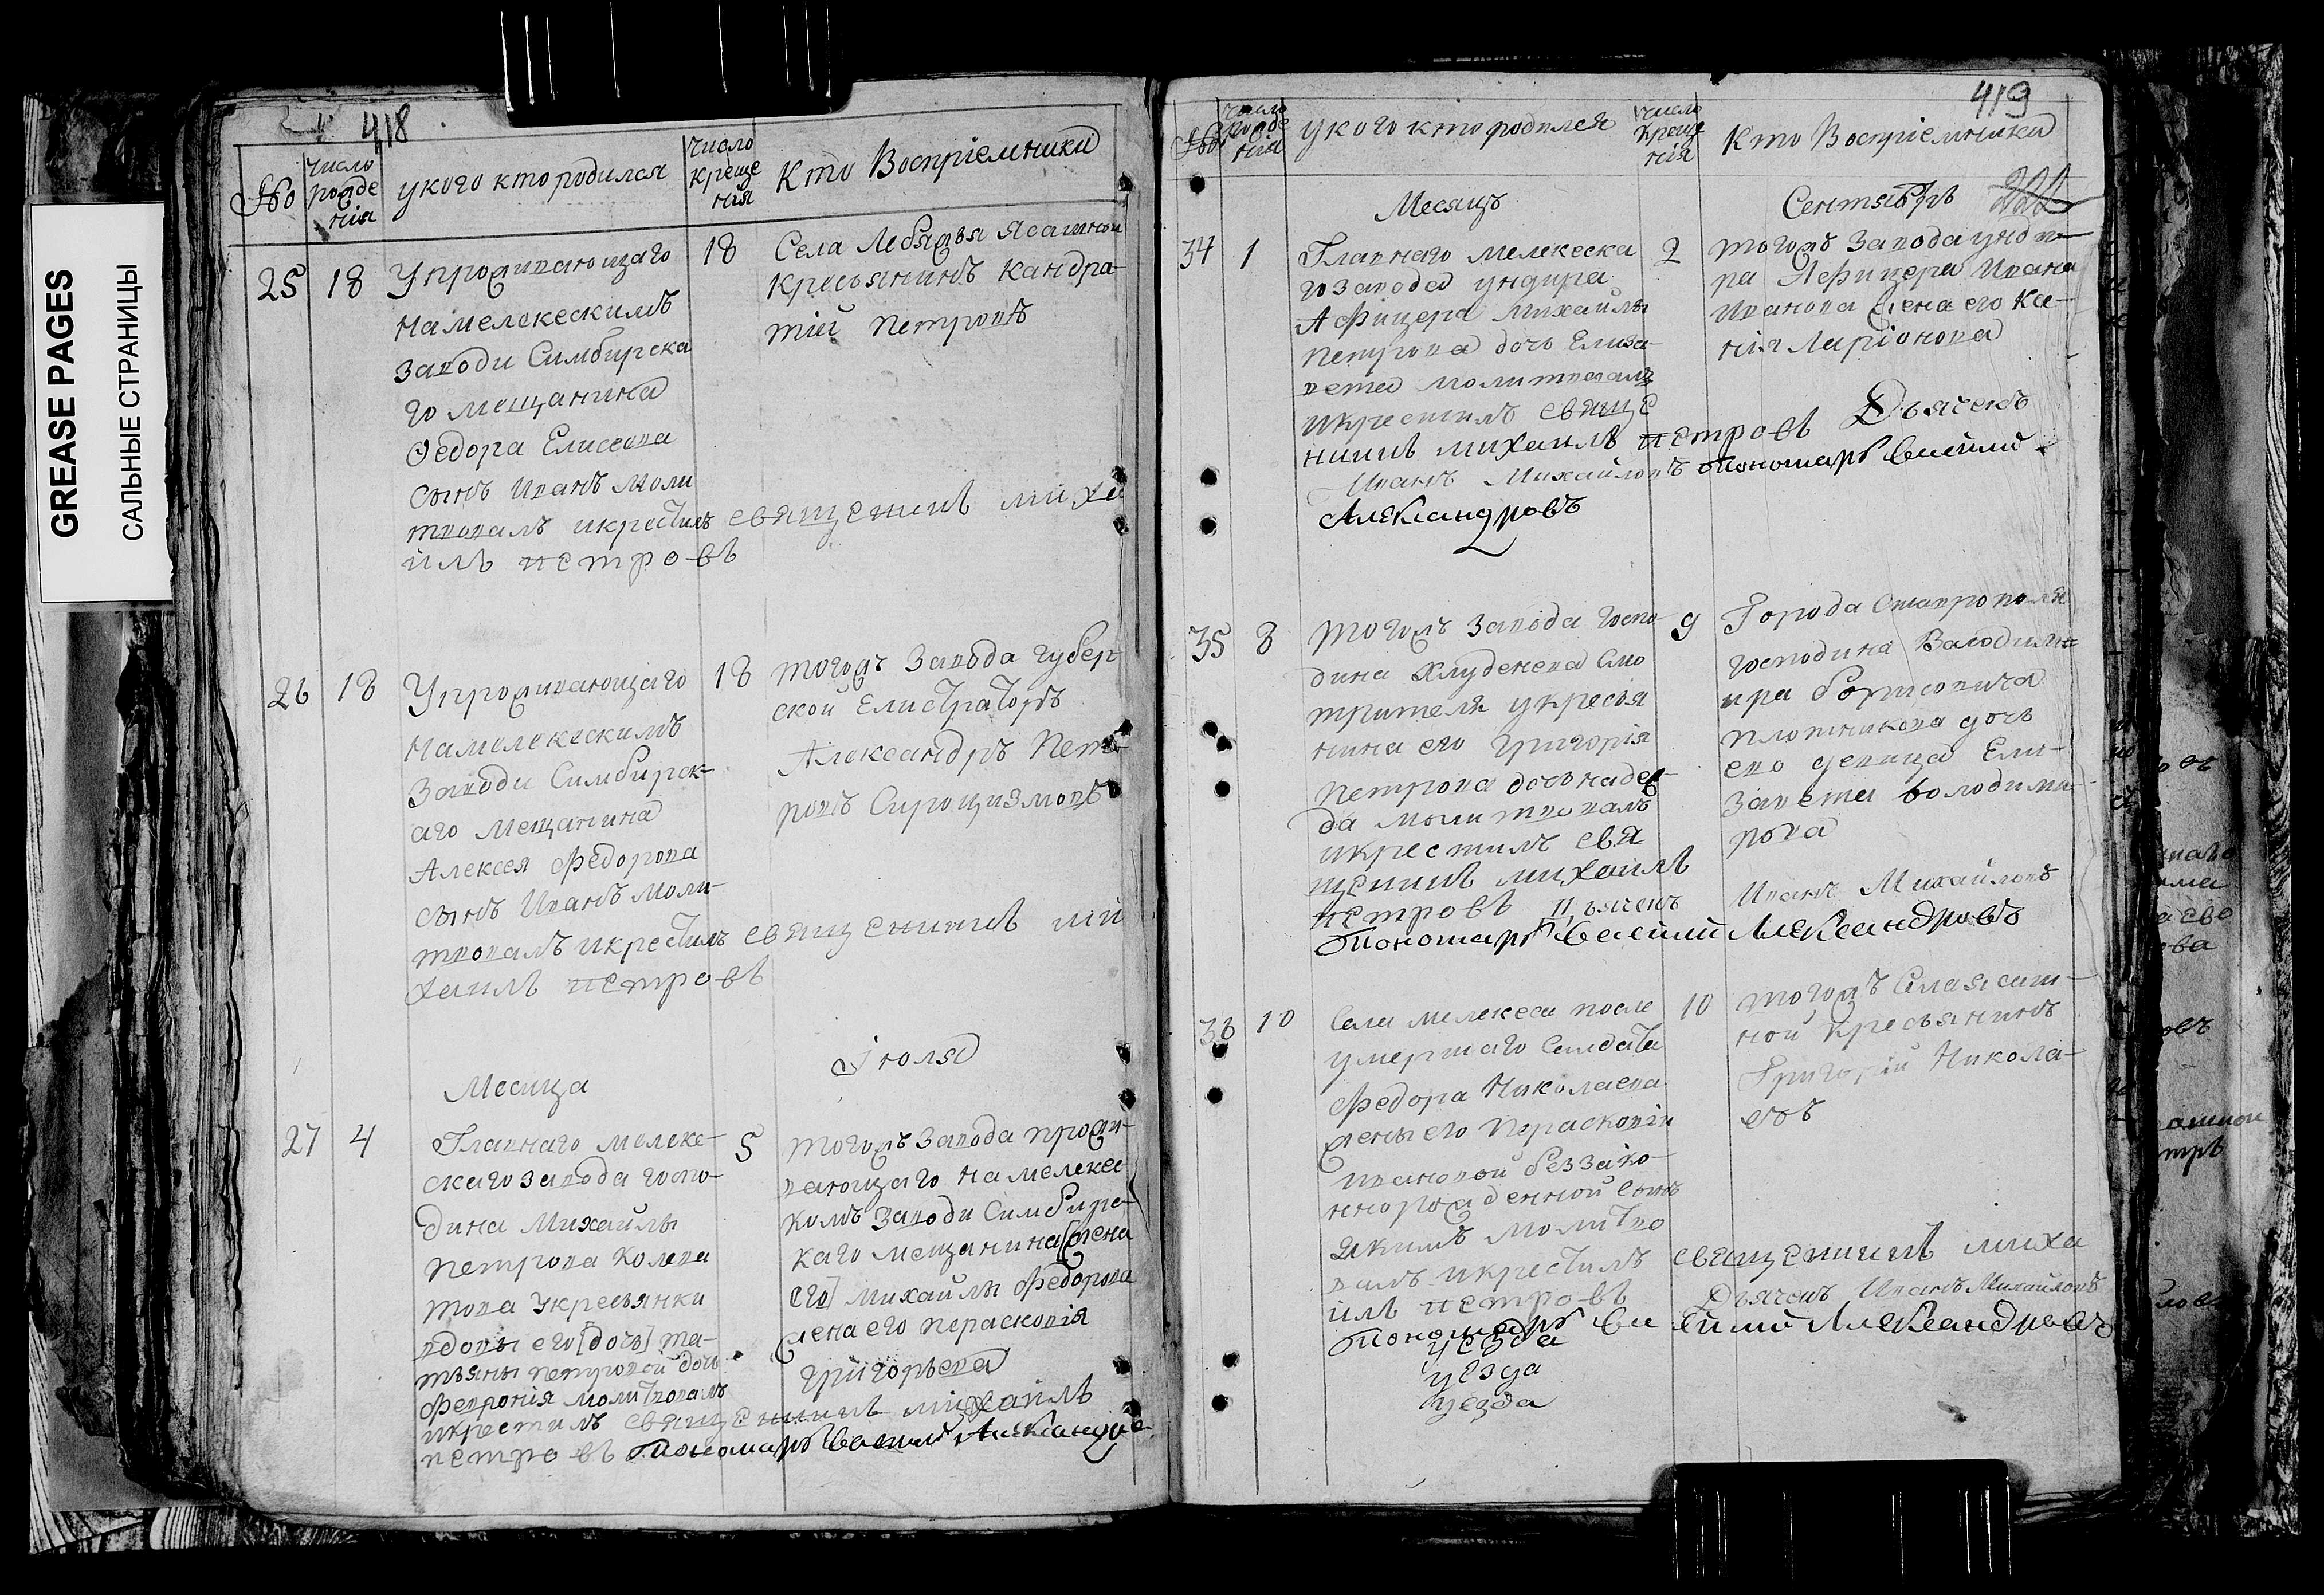 GREASE PAGES
САЛЬНЫЕ СТРАНИЦЫ
418
№
число рожде нія
у кого кто родился
число креще нія
Кто Восприемники
25
18
У проживающаго
на мелекескимъ
заводи Симбирска
го мещанина
Ѳедора Елисеева
сынъ Иванъ моли
твовалъ и крестилъ священникъ миха
илъ петровъ
18
Села Лебяжья ясашной
кресьянинъ Кандра
тій Петровъ
26
18
У проживающаго
на мелекескимъ
Заводи Симбирск-
аго мещанина
Алексея Федорова
сынъ Иванъ моли-
твовалъ и крестилъ священникъ ми
хаилъ петровъ
18
тогожъ Завода губер
ской Елистраторъ
Александръ Пет-
ровъ
Месица
Іюля
27
4
Главнаго мелеке-
скаго завода госпо-
дина Михайлы
Петрова
това у кресьянки
вдовы его [дочь] та-
тьяны петровой дочь
Феврония молитвовалъ
и крестилъ священникъ михаилъ
петровъ пономарь василий Александро
5
тогожъ завода прожи-
вающаго на мелекес
комъ заводи Симбирс-
каго мещанина [жена
его] михайлы Федорова
жена его Перасковія
Григорьева
419
№
число рожде нія
у кого кто родился
число креще нія
Кто Восприемники
Месяцъ
Сентябрь
34
1
Главнаго мелекеска
го завода ундира
Афицера михайлы
петрова дочь Елиза-
вета молитвовалъ
и крестилъ свяще
нникъ михаилъ петровъ Дьячекъ
Иванъ Михайловъ пономарь василий
Александровъ
2
тогожъ завода унди-
ра Афицера Ивана
Иванова жена его Ксе-
нія Ларіонова
35
8
тогожъ завода госпо-
дина Хлуденева смо
трителя у кресья
нина его Григорія
Петрова дочь Надеж-
да молитвовалъ
и крестилъ свя
щенникъ михаилъ
петровъ Дьячекъ Иванъ Михайловъ
пономарь василий Александровъ
9
Города Ставрополя
господина Валодими
ира борисовича
плотникова дочь
ево девица Ели-
завета володими-
рова
36
10
Села мелекеса после
умершаго Салдата
Федора Николаева
жены его Перасковіи
Ивановой беззако-
ннорожденной сынъ
Якимъ молитво
валъ и крестилъ священникъ миха
илъ петровъ Дьячекъ Иванъ Михайловъ
пономарь василий Александровъ
уезда
уезда
уезда
10
тогожъ Села ясаш-
ной кресьянинъ
Григорій Никола-
евъ